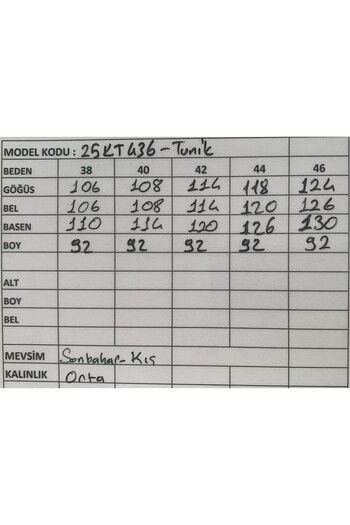 MODEL KODU : 25KT436-Tunik
BEDEN 38 40 42 44 46
GÖĞÜS 106 108 114 118 124
BEL 106 108 114 120 126
BASEN 110 114 120 126 130
BOY 92 92 92 92 92
ALT
BOY
BEL
MEVSİM Sonbahar-Kış
KALINLIK Orta